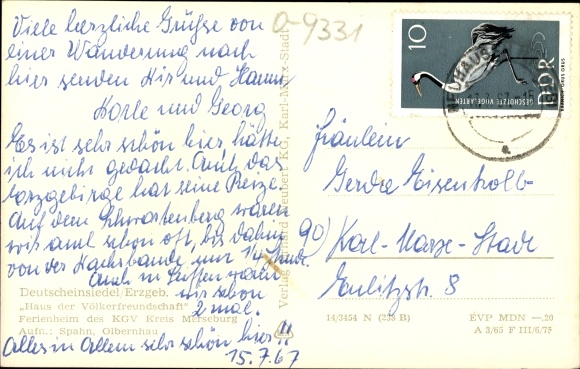 Viele herzliche Grüße von
einer Wanderung nach
hier senden Wir und Hanni
Karle und Georg
Es ist sehr schön hier, hätte
ich nicht gedacht. Auch das
Erzgebirge hat seine Reize.
Auf dem Schwartenberg waren
wir auch schon oft, bis dahin
von der nur 1¼ Stunde.
Auch in Seiffen waren
wir schon
2 mal.
Alles in Allem sehr schön hier!!
15.7.67
Deutscheinsiedel/Erzgeb.
„Haus der Völkerfreundschaft"
Ferienheim des KGV Kreis Merseburg
Aufn.: Spahn, Olbernhau
0-9331
Verlag Neubert KG, Karl-Marx-Stadt
10
DDR
GESCHÜTZTE VOGELARTEN
GRUS GRUS
NEUHAUSEN
a
Fräulein
Gerda
90) Karl-Marx-Stadt
8
14/3454 N (238 B)
EVP MDN —.20
A 3/65 F III/6/75